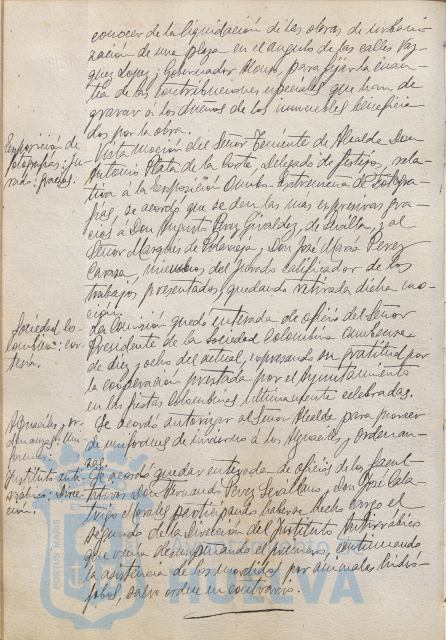 conocer de la liquidación de las obras de urbani-
zación de una plaza en el angulo de las calles Vaz-
quez Lopez y Gobernador Alonso, para fijar la cuan-
tia de las contribuciones especiales que han de
gravar a los dueños de los inmuebles beneficia-
dos por la obra.
Exposición de
fotografias: ju-
rado: gracias.
Vista moción del Señor Teniente de Alcalde Don
Antonio Plata de la Corte, Delegado de festejos, rela-
tiva a la exposición Extremeña de Fotogra-
fias, se acordó que se den las mas expresivas gra-
cias á Don Augusto Perez Giraldez, de Sevilla, y al
Señor Marqués de y Don José Maria Perez
Carasa, miembros del Jurado calificador de los
trabajos presentados, quedando retirada dicha mo-
ción.
Sociedad Co-
lombina: cor-
tesia.
La Comisión quedó enterada de oficio del Señor
Presidente de la Sociedad Colombina Onubense
de diez y ocho del actual, expresando su gratitud por
la cooperación prestada por el Ayuntamiento
en las fiestas Colombinas ultimamente celebradas.
Alguaciles y or-
denanzas: Uni-
formes.
Se acordó autorizar al Señor Alcalde para proveer
de uniformes de invierno a los Alguaciles y Ordenan-
zas.
Instituto anti-
rrabico: Direc-
ción.
Se acordó quedar enterada de oficios de los Facul-
tativos Don Fernando Perez Sevillano y Don José Cala-
trigo Morales participando haberse hecho cargo el
segundo de la Dirección del Instituto Antirrabico
que venia desempeñando el primero, continuando
la asistencia de los mordidos por animales hidró-
fobos, salvo orden en contrario.
PORTUS MARIS
HUELVA